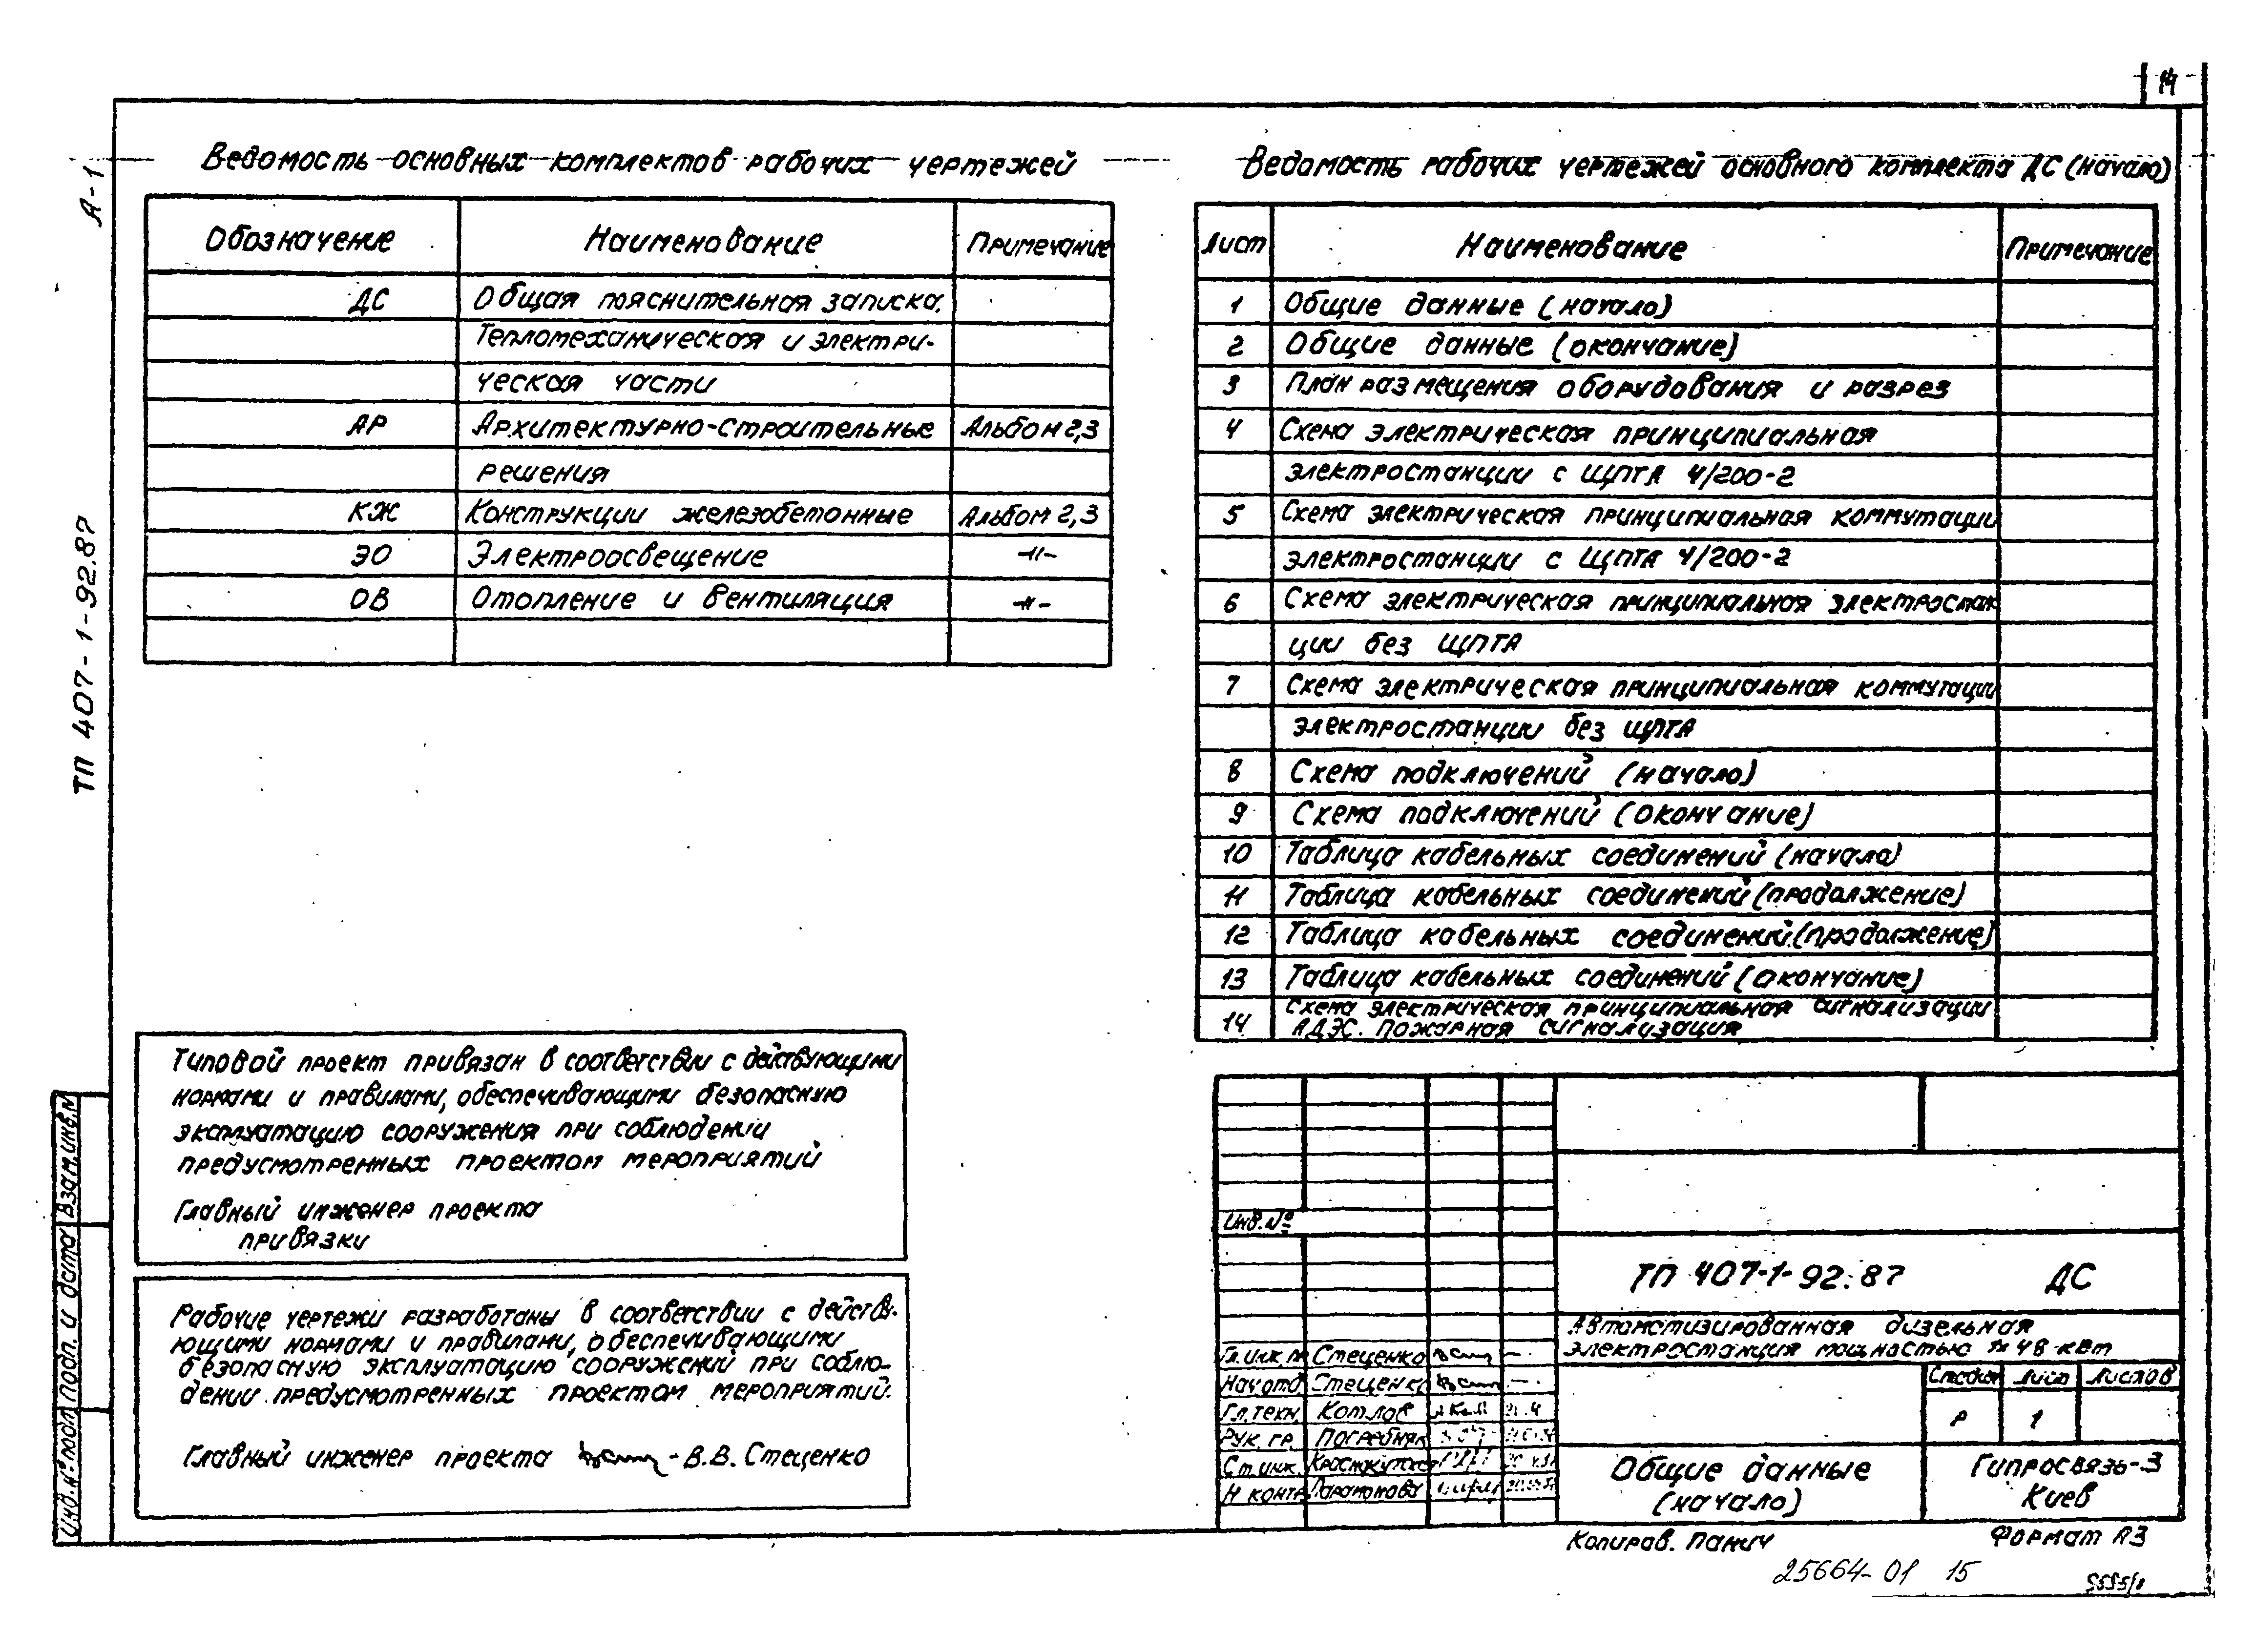 14
А-1
ТП 407-1-92.87
Ведомость основных комплектов рабочих чертежей
Обозначение Наименование Примечание
ДС Общая пояснительная записка.
Тепломеханическая и электри-
ческая части
АР Архитектурно-строительные Альбом 2,3
решения
КЖ Конструкции железобетонные Альбом 2,3
ЭО Электроосвещение -"-
ОВ Отопление и вентиляция -"-
Ведомость рабочих чертежей основного комплекта ДС (начало)
Лист Наименование Примечание
1 Общие данные (начало)
2 Общие данные (окончание)
3 План размещения оборудования и разрез
4 Схема электрическая принципиальная
электростанции с ЩПТА 4/200-2
5 Схема электрическая принципиальная коммутации
электростанции с ЩПТА 4/200-2
6 Схема электрическая принципиальная электростан
ции без ЩПТА
7 Схема электрическая принципиальная коммутации
электростанции без ЩПТА
8 Схема подключений (начало)
9 Схема подключений (окончание)
10 Таблица кабельных соединений (начало)
11 Таблица кабельных соединений (продолжение)
12 Таблица кабельных соединений (продолжение)
13 Таблица кабельных соединений (окончание)
14 Схема электрическая принципиальная сигнализации
АДЭС. Пожарная сигнализация
Типовой проект привязан в соответствии с действующими
нормами и правилами, обеспечивающими безопасную
эксплуатацию сооружения при соблюдении
предусмотренных проектом мероприятий
Главный инженер проекта
привязки
Рабочие чертежи разработаны в соответствии с действу-
ющими нормами и правилами, обеспечивающими
безопасную эксплуатацию сооружений при соблю-
дении предусмотренных проектом мероприятий.
Главный инженер проекта - В.В. Стеценко
Взам.инв.№
Подп. и дата
Инв.№ подл
Инв.№
ТП 407-1-92.87 ДС
Автоматизированная дизельная
электростанция мощностью 48 квт
Гл.инж.пр Стеценко
Нач.отд Стеценко
Гл.техн. Котлов
Рук. гр. Погребняк
Ст.инж.
Н контр Парамонова
Стадия Лист Листов
Р 1
Общие данные
(начало)
Гипросвязь-3
Киев
Копиров. Панич
Формат А3
25664-01 15